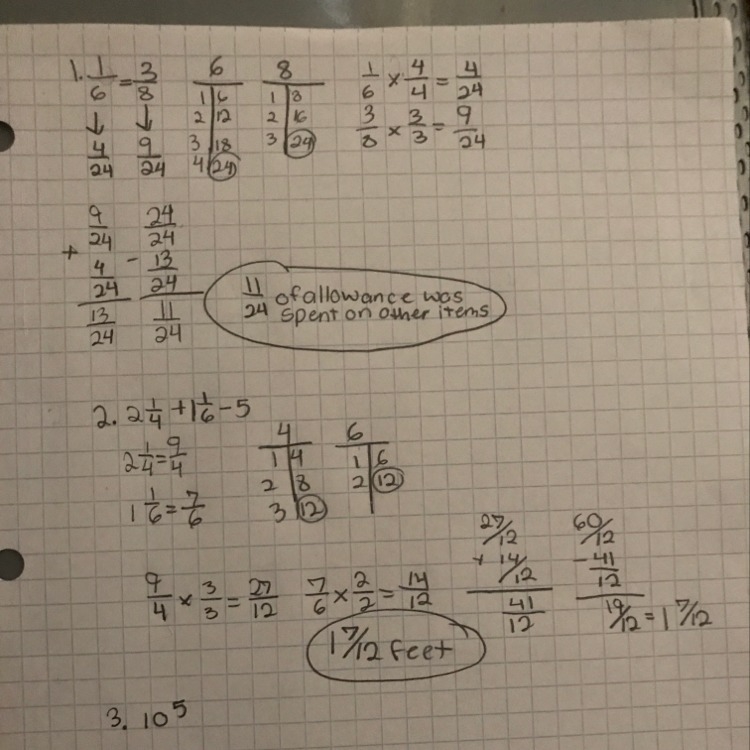 1. 1/6 = 3/8
↓ ↓
4/24 9/24
6
1 6
2 12
3 18
4 24
8
1 8
2 16
3 24
1/6 × 4/4 = 4/24
3/8 × 3/3 = 9/24
9/24
+ 4/24
13/24
24/24
- 13/24
11/24
11/24 of allowance was
spent on other items
2. 2 1/4 + 1 1/6 - 5
2 1/4 = 9/4
1 1/6 = 7/6
4
1 4
2 8
3 12
6
1 6
2 12
9/4 × 3/3 = 27/12
7/6 × 2/2 = 14/12
27/12
+ 14/12
41/12
60/12
- 41/12
19/12 = 1 7/12
1 7/12 feet
3. 10⁵